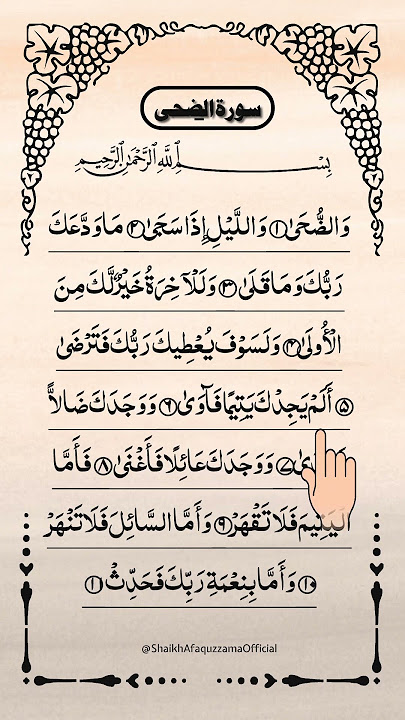 سورة الضحى
بِسْمِ اللَّهِ الرَّحْمَٰنِ الرَّحِيمِ
وَالضُّحَىٰ ١ وَاللَّيْلِ إِذَا سَجَىٰ ٢ مَا وَدَّعَكَ
رَبُّكَ وَمَا قَلَىٰ ٣ وَلَلْآخِرَةُ خَيْرٌ لَّكَ مِنَ
الْأُولَىٰ ٤ وَلَسَوْفَ يُعْطِيكَ رَبُّكَ فَتَرْضَىٰ
٥ أَلَمْ يَجِدْكَ يَتِيمًا فَآوَىٰ ٦ وَوَجَدَكَ ضَالًّا
٧ وَوَجَدَكَ عَائِلًا فَأَغْنَىٰ ٨ فَأَمَّا
الْيَتِيمَ فَلَا تَقْهَرْ ٩ وَأَمَّا السَّائِلَ فَلَا تَنْهَرْ
١٠ وَأَمَّا بِنِعْمَةِ رَبِّكَ فَحَدِّثْ ١١
@ShaikhAfaquzzamaOfficial